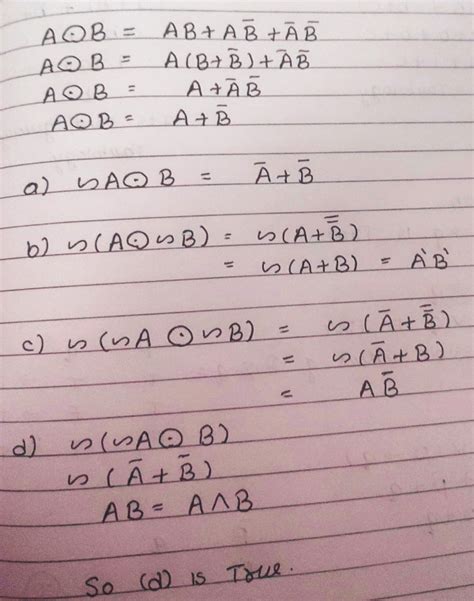 A⊙B = AB + AB̅ + A̅B̅
A⊙B = A(B+B̅) + A̅B̅
A⊙B = A + A̅B̅
A⊙B = A + B̅
a) ∽A⊙B = A̅ + B̅
b) ∽(A⊙∽B) = ∽(A + B̿)
= ∽(A+B) = A`B`
c) ∽(∽A ⊙ ∽B) = ∽(A̅ + B̿)
= ∽(A̅ + B)
= AB̅
d) ∽(∽A⊙B)
∽(A̅ + B̅)
AB = A∧B
So (d) is True.